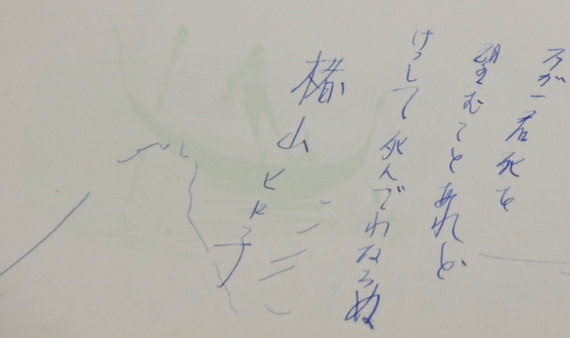 万が一君死を
望むことあれど
けっして死んでわならぬ
楮山ヒロ子